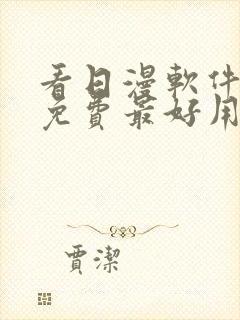 看日漫軟件
免費最好用
賈潔